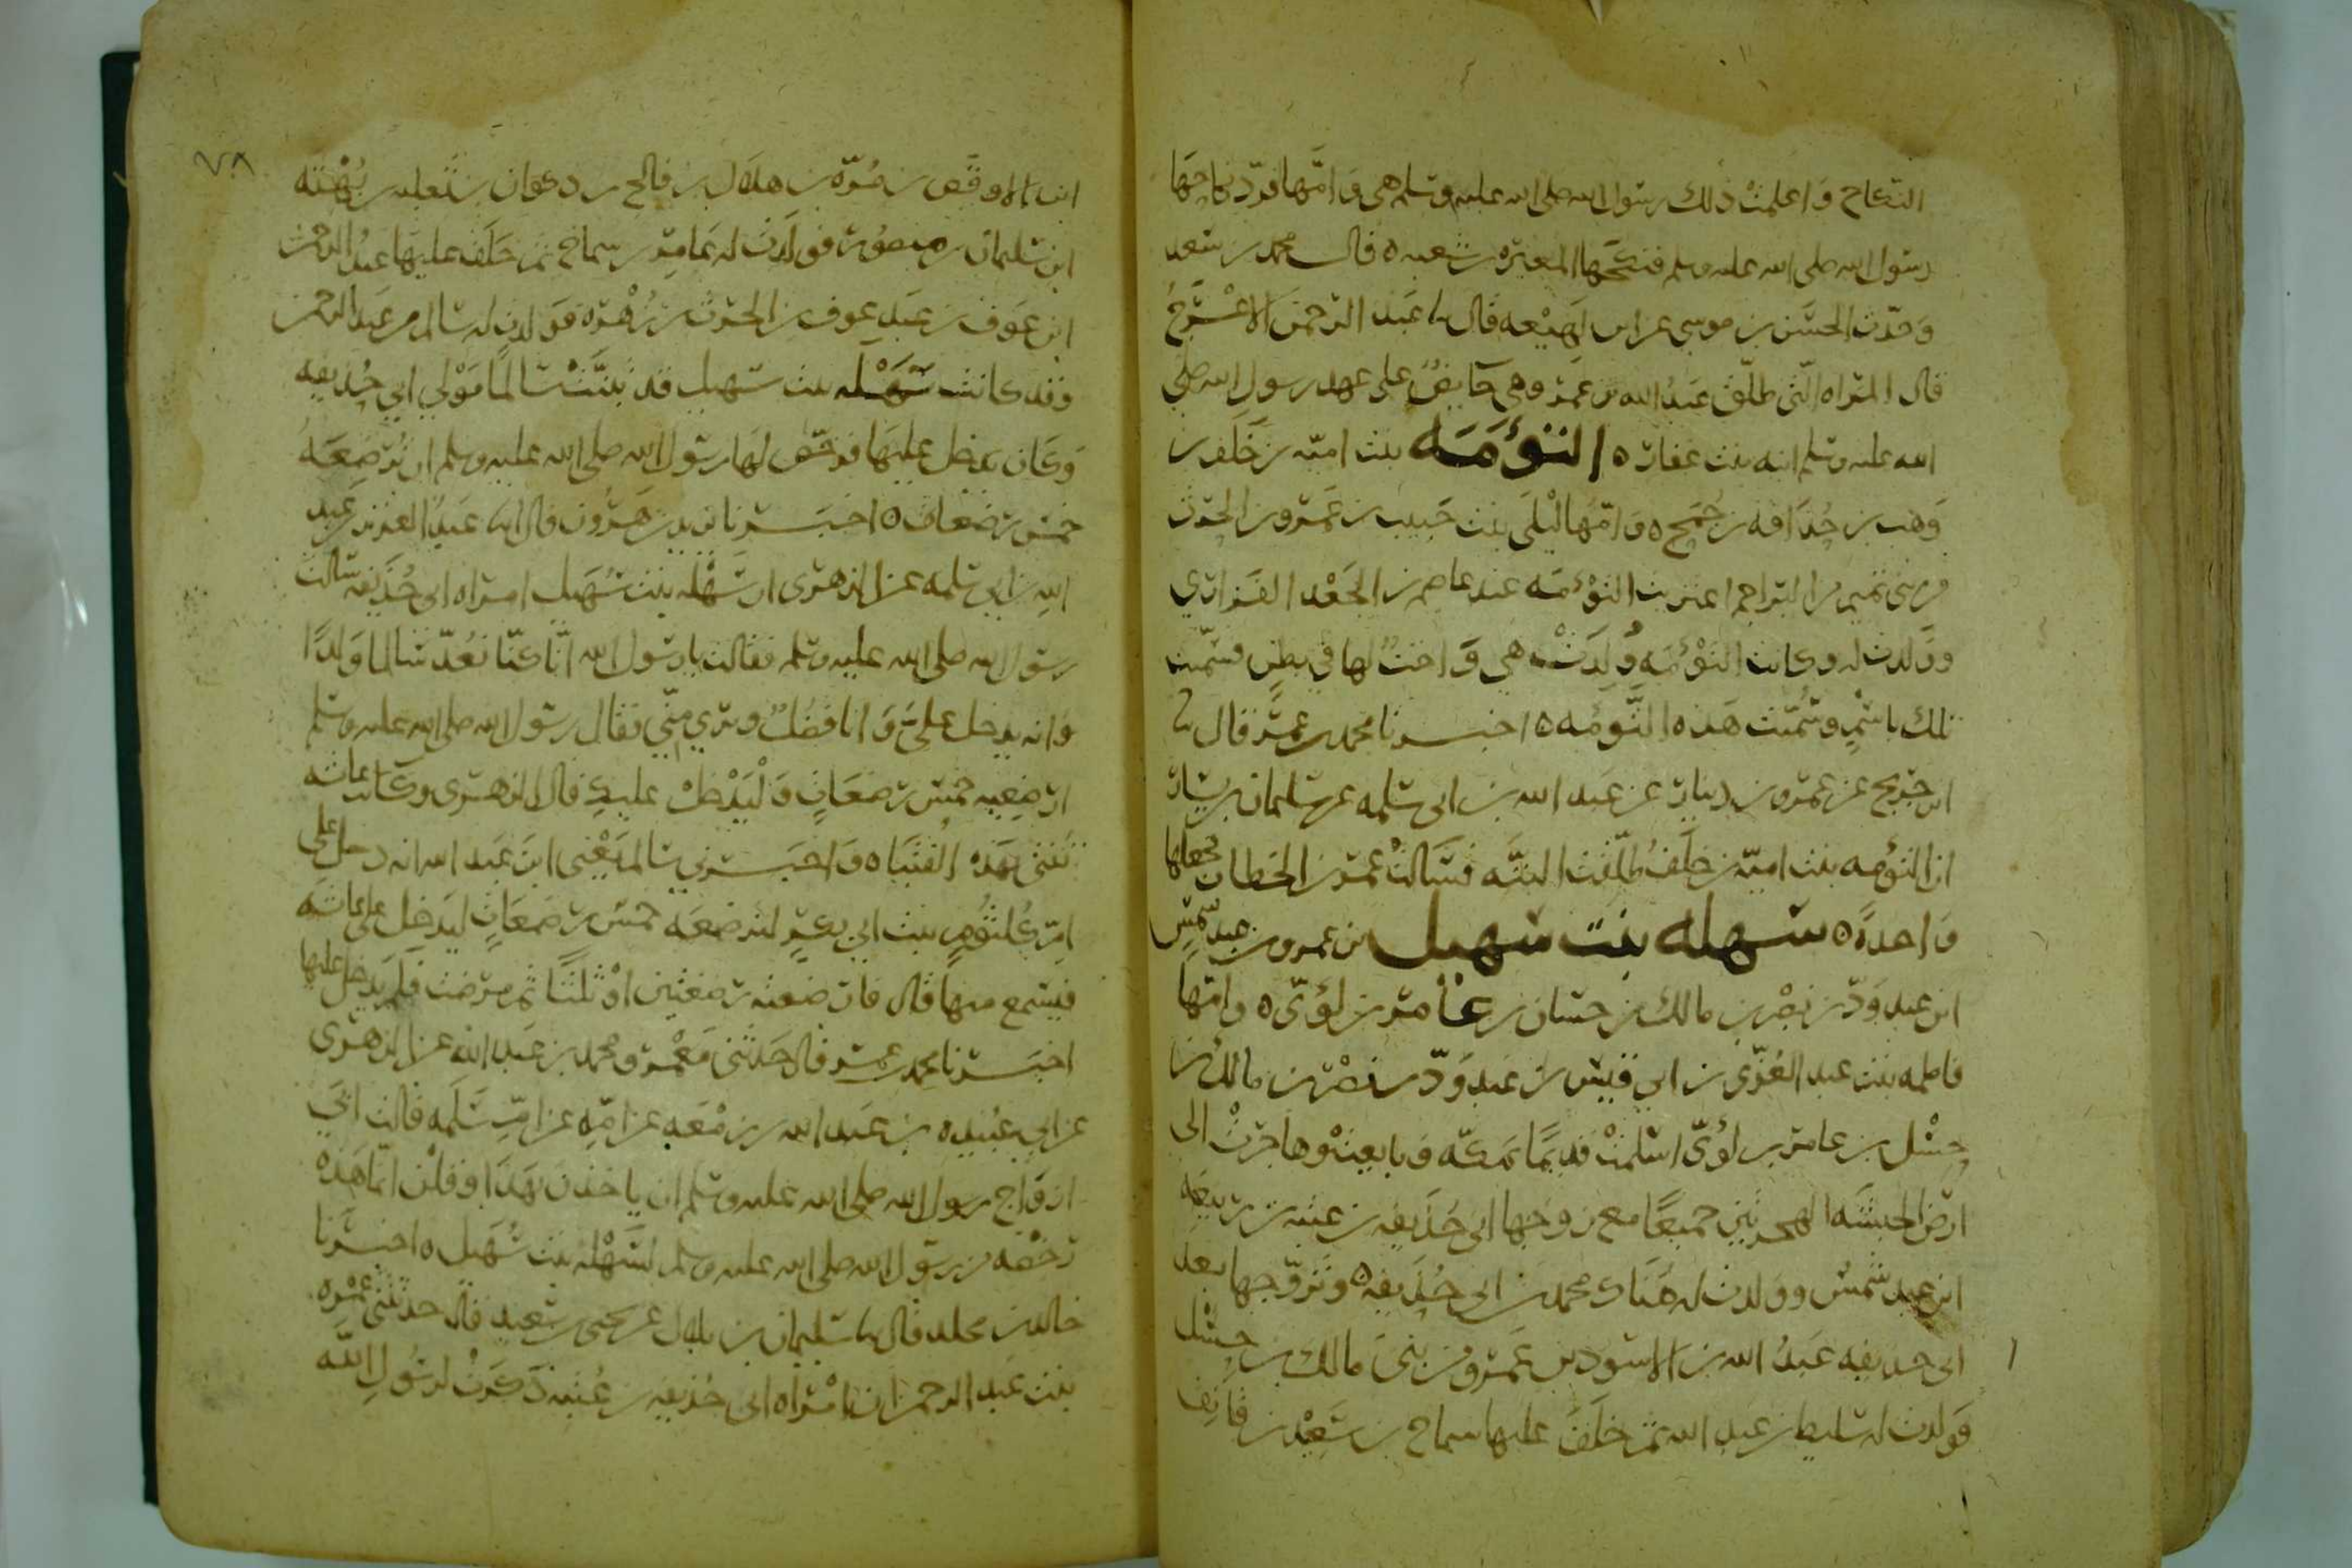 النكاح واعلمت ذلك رسول الله صلى الله عليه وسلم هي وامها فرد نكاحها
رسول الله صلى الله عليه وسلم فنكحها المغيره بن شعبه ه قال محمد بن سعد
وحدث الحسن بن موسى عن ابن لهيعه قال نا عبد الرحمن الاعرج
قال المراه التي طلق عبد الله بن عمر وهي حايض على عهد رسول الله صلى
الله عليه وسلم انه بنت غفار ه التؤمه بنت اميه بن خلف بن
وهب بن حذافه بن جمح ه وامها ليلى بنت حبيب بن عمرو بن الحرث
من بني تميم من البراجم اغتربت التؤمه عند عاصم بن الجعد الفزاري
وولدت له وكانت التؤمه ولدت هي واخت لها في بطن فسميت
تلك باسم وسميت هذه التؤمه ه اخبرنا محمد بن عمر قال نا
ابن جريج عن عمرو بن دينار عن عبد الله بن ابي سلمه عن سليمان بن يسار
ان التؤمه بنت اميه بن خلف طلقت البته فسالت عمر بن الخطاب فجعلها
واحدة ه سهله بنت سهيل بن عمرو بن عبد شمس
ابن عبد ود بن نصر بن مالك بن حسان بن عامر بن لؤي ه وامها
فاطمه بنت عبد العزى بن ابي قيس بن عبد ود بن نصر بن مالك بن
حسل بن عامر بن لؤي اسلمت قديما بمكه وبايعت وهاجرت الى
ارض الحبشه الهجرتين جميعا مع زوجها ابي حذيفه بن عتبه بن ربيعه
ابن عبد شمس وولدت له هناك محمد بن ابي حذيفه ه وتزوجها بعد
ابي حذيفه عبد الله بن الاسود بن عمرو من بني مالك بن حسل
فولدت له سليط بن عبد الله ثم خلف عليها سماخ بن سعيد بن قانف
٧٨
ابن الاوقص بن مره بن هلال بن فالج بن ذكوان بن ثعلبه بن بهثه
ابن سليمان بن منصور فولدت له عامر بن سماخ ثم خلف عليها عبد الرحمن
ابن عوف بن عبد عوف بن الحرث بن زهره فولدت له سالم بن عبد الرحمن
وقد كانت سهله بنت سهيل قد تبنت سالما مولى ابي حذيفه
وكان يدخل عليها فرخص لها رسول الله صلى الله عليه وسلم ان ترضعه
خمس رضعات ه اخبرنا يزيد بن هرون قال انا عبد العزيز بن عبد
الله بن ابي سلمه عن الزهري ان سهله بنت سهيل امراه ابي حذيفه سالت
رسول الله صلى الله عليه وسلم فقالت يا رسول الله انا كنا نعد سالما ولدا
وانه يدخل علي وانا فضل ويرى مني فقال رسول الله صلى الله عليه وسلم
ارضعيه خمس رضعات وليدخل عليك قال الزهري وكانت عائشه
تفتي بهذه الفتيا ه واخبرني سالم يعني ابن عبد الله انه دخل على
ام كلثوم بنت ابي بكر لترضعه خمس رضعات ليدخل على عائشه
فيسمع منها قال فارضعته رضعتين او ثلثا ثم مرضت فلم يدخل عليها
اخبرنا محمد بن عمر قال حدثني معمر ومحمد بن عبد الله عن الزهري
عن ابي عبيده بن عبد الله بن زمعه عن امه عن ام سلمه قالت ابى
ازواج رسول الله صلى الله عليه وسلم ان ياخذن بهذا وقلن انما هذه
رخصه من رسول الله صلى الله عليه وسلم لسهله بنت سهيل ه اخبرنا
خالد بن مخلد قال نا سليمان بن بلال عن يحيى بن سعيد قال حدثتني عمره
بنت عبد الرحمن ان امراه ابي حذيفه بن عتبه ذكرت لرسول الله